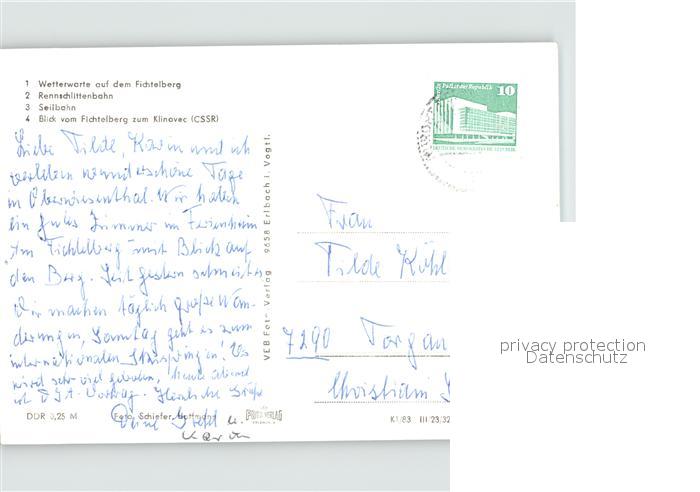 1 Wetterwarte auf dem Fichtelberg
2 Rennschlittenbahn
3 Seilbahn
4 Blick vom Fichtelberg zum Klinovec (CSSR)
Liebe Tilde, Karin und ich
verleben wunderschöne Tage
in Oberwiesenthal. Wir haben
ein gutes Zimmer im Ferienheim
"Am Fichtelberg" mit Blick auf
den Berg. Seit gestern schneit es
Wir machen täglich große Wan-
derungen, Sonntag geht es zum
internationalen Skispringen! Es
wird sehr viel geboten, heute abend
ist Vortrag. Herzliche Grüße
Deine u.
Karin
DDR 0,25 M
Foto: Schiefer,
FOTO-VERLAG
K1/83 III/23/32
VEB Foto-Verlag 9658 Erlbach i. Vogtl.
10
Palast der Republik
DEUTSCHE DEMOKRATISCHE REPUBLIK
Frau
Tilde
7290 Torgau
privacy protection
Datenschutz